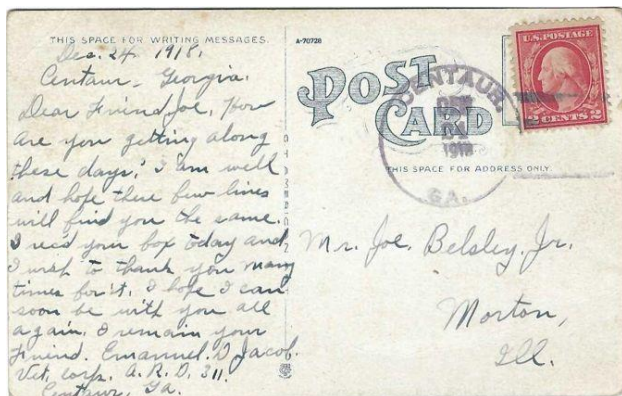 THIS SPACE FOR WRITING MESSAGES.
A-70728
Dec. 24, 1918,
Centaur, Georgia.
Dear Friend Joe, How
are you getting along
these days, I am well
and hope these few lines
will find you the same.
I rec'd your box today and
I wish to thank you many
times for it. I hope I can
soon be with you all
again. I remain your
Friend. Emanuel. D Jacob.
Vet. Corp. A. R. D. 311.
Centaur, Ga.
POST
CARD
CENTAUR
DEC
1918
GA.
U.S. POSTAGE
2 CENTS 2
THIS SPACE FOR ADDRESS ONLY.
Mr. Joe. Belsley, Jr.
Morton,
Ill.